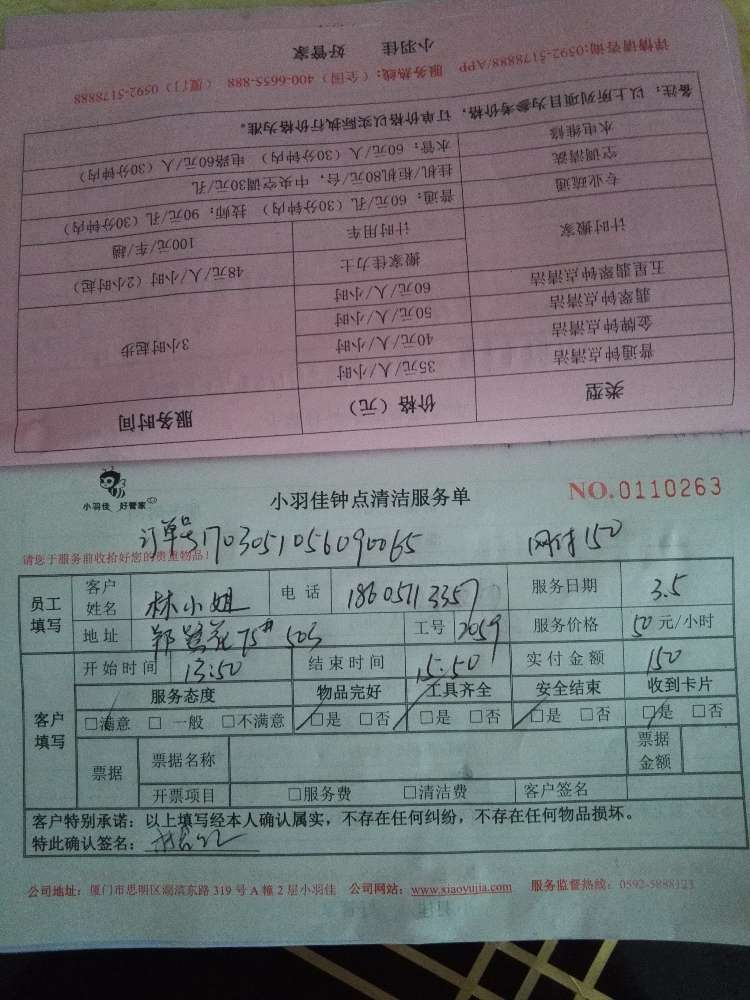 小羽佳 好管家
详情请咨询:0592-5178888/APP 服务热线:(全国)400-6655-888 (厦门)0592-5178888
备注:以上所列项目为参考价格,订单价格以实际执行价格为准。
水电维修 水管:60元/人(30分钟内) 电路60元/人(30分钟内)
空调清洗 挂机/柜机80元/台,中央空调30元/孔
专业疏通 普通:60元/孔(30分钟内) 技师:90元/孔(30分钟内)
计时搬家 计时用车 100元/车/趟
搬家佳力士 48元/人/小时(2小时起)
五星翡翠钟点清洁 60元/人/小时
翡翠钟点清洁 50元/人/小时
金牌钟点清洁 40元/人/小时
普通钟点清洁 35元/人/小时
3小时起步
类型 价格(元) 服务时间
小羽佳 好管家
小羽佳钟点清洁服务单
NO.0110263
订单号1703051056090065 网付150
请您于服务前收拾好您的贵重物品!
员工填写 客户姓名 林小姐 电话 18605713357 服务日期 3.5
地址 503 工号 2059 服务价格 50元/小时
开始时间 13:50 结束时间 15:50 实付金额 150
客户填写 服务态度 物品完好 工具齐全 安全结束 收到卡片
□满意 □一般 □不满意 □是 □否 □是 □否 □是 □否 □是 □否
票据 票据名称 票据金额
开票项目 □服务费 □清洁费 客户签名
客户特别承诺:以上填写经本人确认属实,不存在任何纠纷,不存在任何物品损坏。
特此确认签名:
公司地址:厦门市思明区湖滨东路319号A幢2层小羽佳 公司网站:www.xiaoyujia.com 服务监督热线:0592-5888123